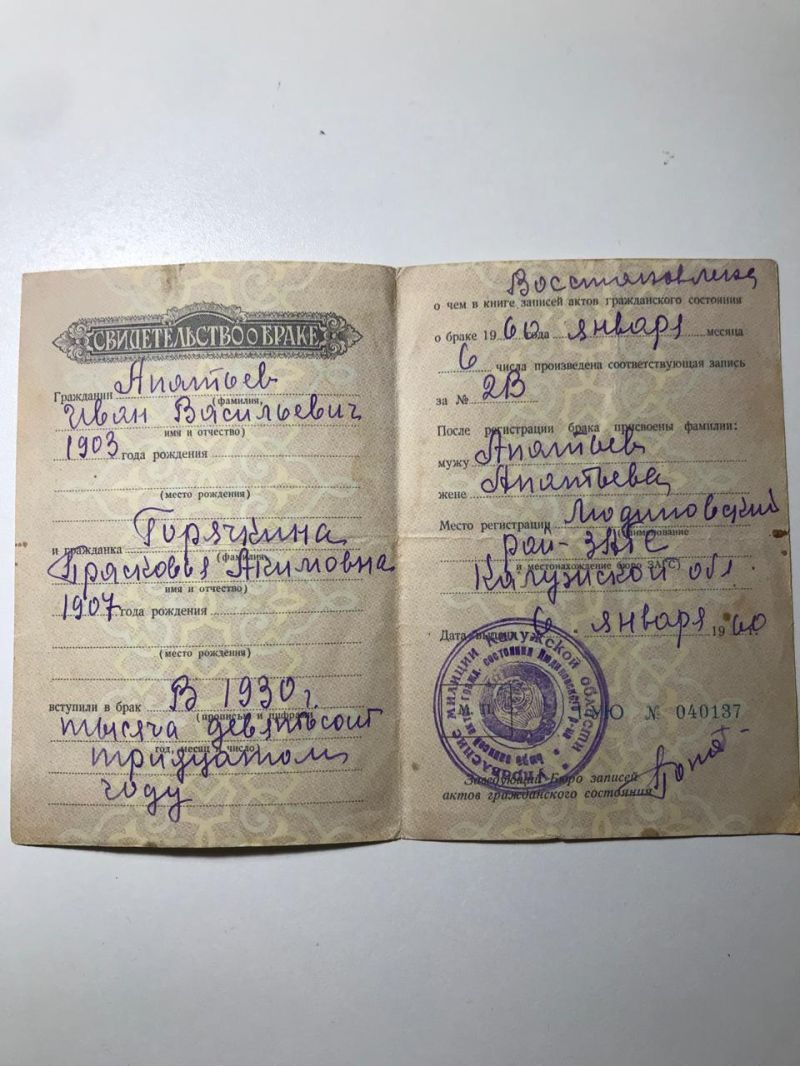 СВИДЕТЕЛЬСТВО О БРАКЕ
Гражданин Апатьев
(фамилия,
Иван Васильевич
имя и отчество)
1903 года рождения
(место рождения)
и гражданка Горячкина
(фамилия,
Прасковья Акимовна
имя и отчество)
1907 года рождения
(место рождения)
вступили в брак В 1930 г.
(прописью и цифрами
тысяча девятьсот
год, месяц и число)
тридцатом
году
Восстановлена
о чем в книге записей актов гражданского состояния
о браке 1960 года января месяца
6 числа произведена соответствующая запись
за № 2В
После регистрации брака присвоены фамилии:
мужу Апатьев
жене Апатьева
Место регистрации Людиновский
(наименование
рай-ЗАГС
и местонахождение бюро ЗАГС)
Калужской обл.
Дата выдачи 6 января 1960 г.
М. П.
ЮО № 040137
Заведующий Бюро записей
актов гражданского состояния